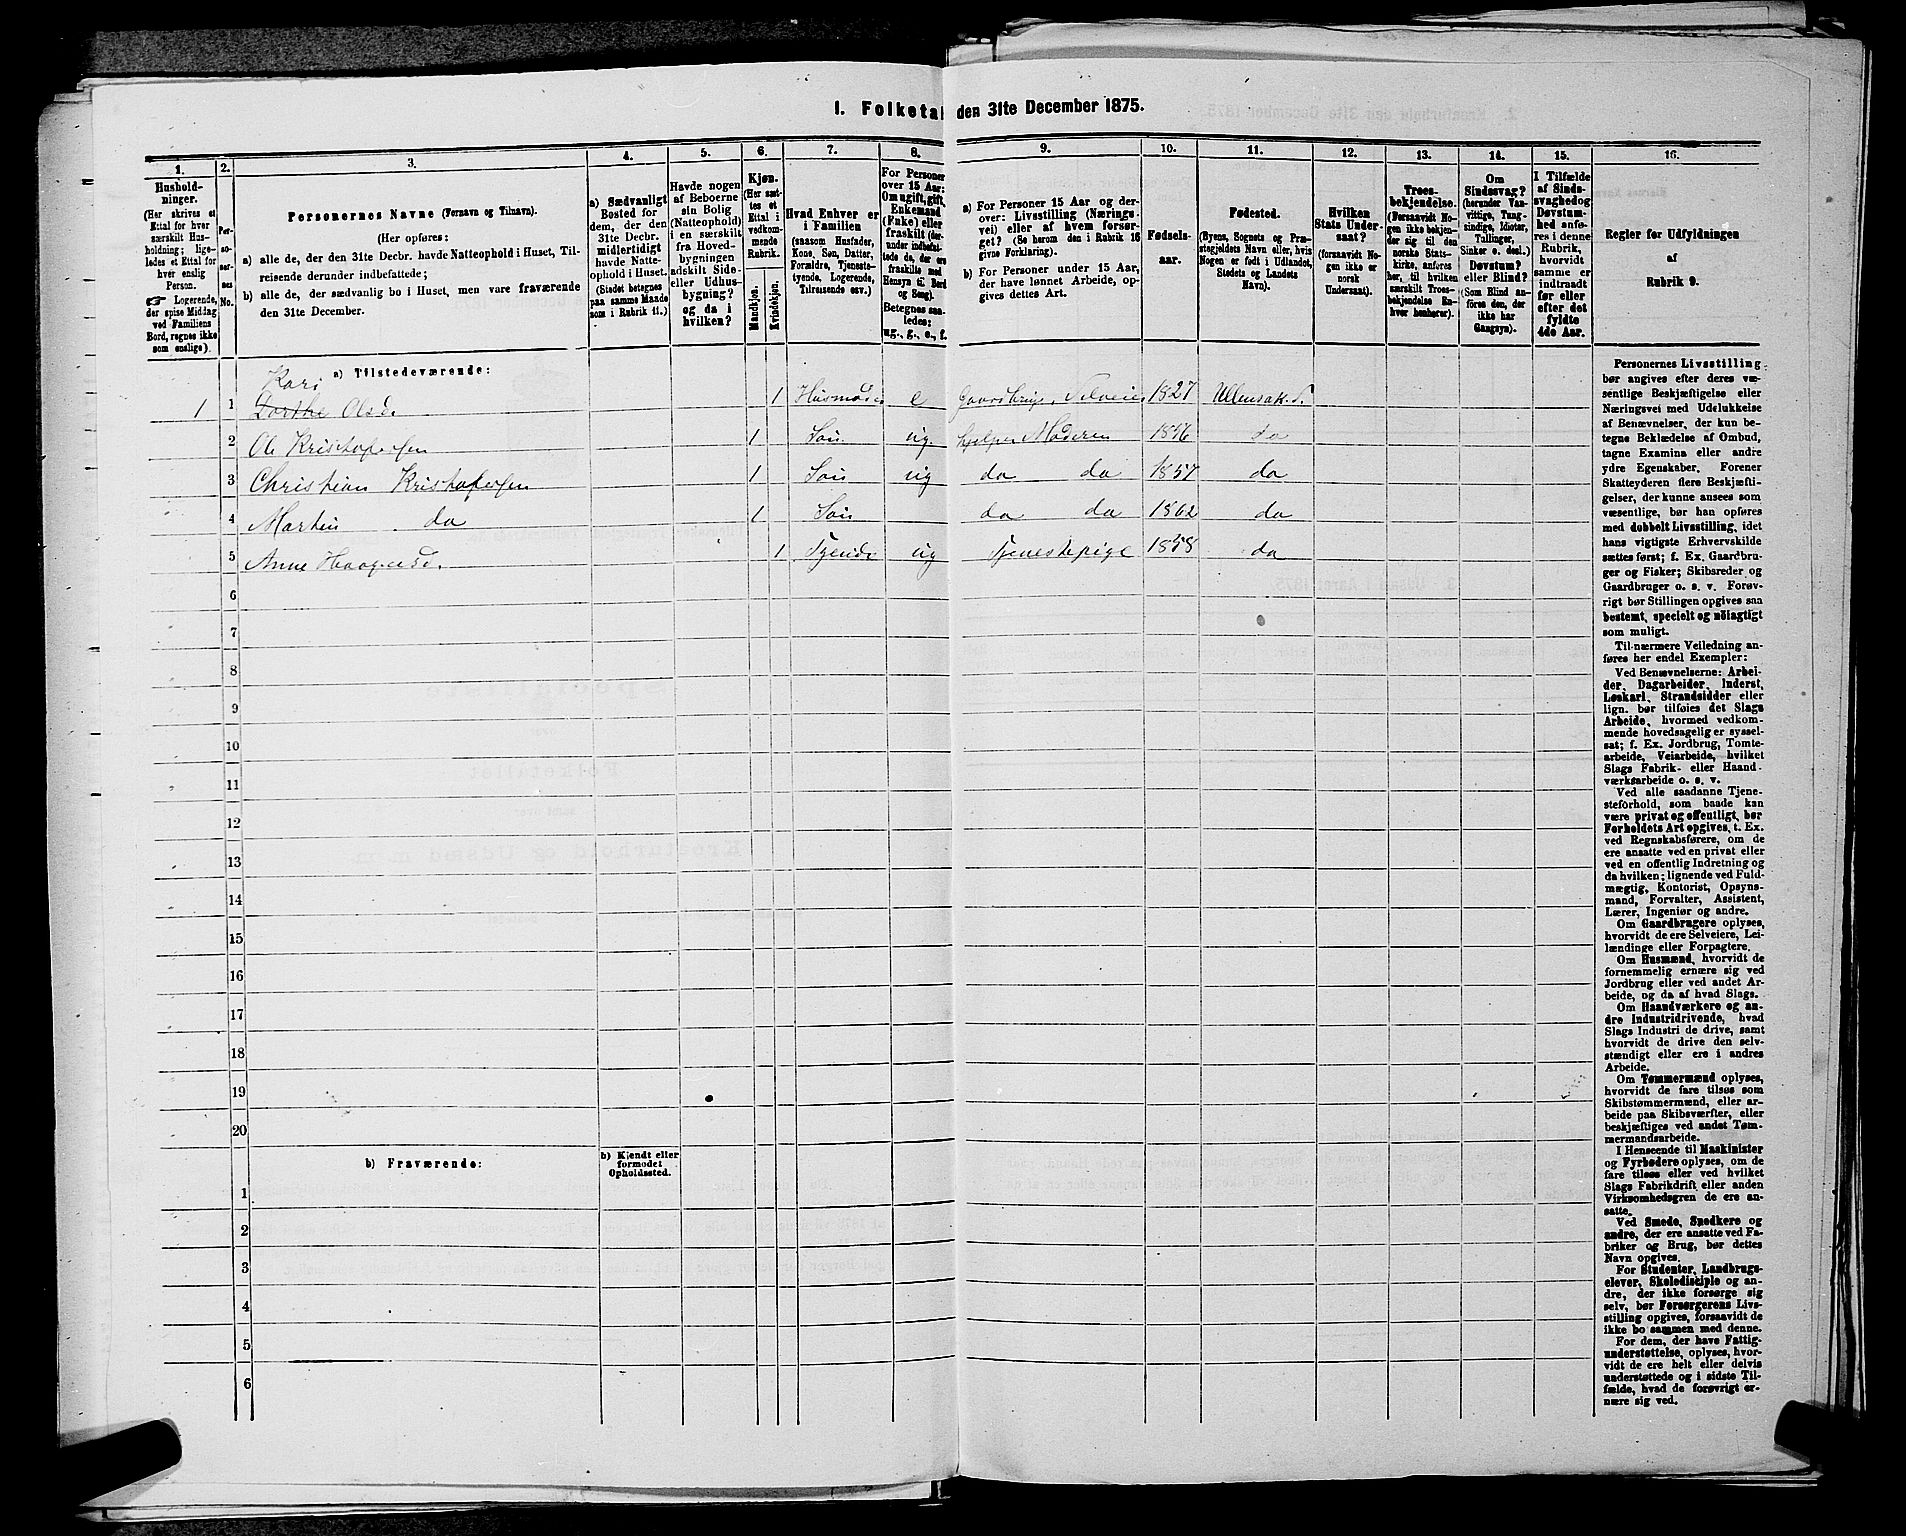 I. Folketal den 31te December 1875.
1.
2.
3.
4.
5.
6.
7.
8.
9.
10.
11.
12.
13.
14.
15.
16.
Hushold-
ninger.
(Her skrives et
Ettal for hver
særskilt Hus-
holdning; lige-
ledes et Ettal for
hver enslig
Person.
☞ Logerende,
der spise Middag
ved Familiens
Bord, regnes ikke
som enslige).
Per-
so-
ner-
nes
No.
Personernes Navne (Fornavn og Tilnavn).
(Her opføres:
a) alle de, der den 31te Decbr. havde Natteophold i Huset, Til-
reisende derunder indbefattede;
b) alle de, der sædvanlig bo i Huset, men vare fraværende
den 31te December.
a) Sædvanligt
Bosted for
dem, der den
31te Decbr.
midlertidigt
havde Natte-
ophold i Huset.
(Stedet betegnes
paa samme Maade
som i Rubrik 11.)
Havde nogen
af Beboerne
sin Bolig
(Natteophold)
i en særskilt
fra Hoved-
bygningen
adskilt Side-
eller Udhus-
bygning?
og da i
hvilken?
Kjøn.
(Her sæt-
tes et
Ettal i
vedkom-
mende
Rubrik.
Mandkjøn.
Kvindekjøn.
Hvad Enhver er
i Familien
(saasom Husfader,
Kone, Søn, Datter,
Forældre, Tjeneste-
tyende, Logerende,
Tilreisende osv.)
For Personer
over 15 Aar:
Om ugift, gift,
Enkemand
(Enke) eller
fraskilt (der-
under indbefat-
tede de, der ere
fraskilte med
Hensyn til Bord
og Seng).
Betegnes saa-
ledes:
ug., g., e., f.
a) For Personer 15 Aar og der-
over: Livsstilling (Nærings-
vei) eller af hvem forsør-
get? (Se herom den i Rubrik 16
givne Forklaring).
b) For Personer under 15 Aar,
der have lønnet Arbeide, op-
gives dettes Art.
Fødsels-
aar.
Fødested.
(Byens, Sognets og Præ-
stegjeldets Navn eller, hvis
Nogen er født i Udlandet,
Stedets og Landets
Navn).
Hvilken
Stats Under-
saat?
(forsaavidt No-
gen ikke er
norsk
Undersaat).
Troes-
bekjendelse.
(Forsaavidt No-
gen ikke bekjen-
der sig til den
norske Stats-
kirke, anføres
her, til hvilken
særskilt Troes-
bekjendelse En-
hver henhører).
Om
Sindssvag?
(herunder Van-
vittige, Tung-
sindige, Idioter,
Tullinger,
Sinker o. desl.)
Døvstum?
eller Blind?
(Som Blind an-
føres den, der
ikke har
Gangsyn).
I Tilfælde
af Sinds-
svaghed og
Døvstum-
hed anfø-
res i denne
Rubrik,
hvorvidt
samme er
indtraadt
før eller
efter det
fyldte
4de Aar.
Regler for Udfyldningen
af
Rubrik 9.
a) Tilstedeværende:
Kari
1 1 Dorthe Olsd. 1 Husmoder e Gaardbrug. Selveier 1827 Ullensak. P.
2 Ole Kristofersen 1 Søn ug. hjelper Moderen 1856 do
3 Christian Kristofersen 1 Søn ug do do 1857 do
4 Martin do 1 Søn do do 1862 do
5 Anne Haagensd. 1 Tyende ug Tjenestepige 1858 do
6
7
8
9
10
11
12
13
14
15
16
17
18
19
20
b) Fraværende:
b) Kjendt eller
formodet
Opholdssted.
1
2
3
4
5
6
Personernes Livsstilling
bør angives efter deres væ-
sentlige Beskjæftigelse eller
Næringsvei med Udelukkelse
af Benævnelser, der kun be-
tegne Beklædelse af Ombud,
tagne Examina eller andre
ydre Egenskaber. Forener
Skatteyderen flere Beskjæfti-
gelser, der kunne ansees som
væsentlige, bør han opføres
med dobbelt Livsstilling, idet
hans vigtigste Erhvervskilde
sættes først; f. Ex. Gaardbru-
ger og Fisker; Skibsreder og
Gaardbruger o. s. v. Forøv-
rigt bør Stillingen opgives saa
bestemt, specielt og nöiagtigt
som muligt.
Til nærmere Veiledning an-
føres her endel Exempler:
Ved Benævnelserne: Arbei-
der, Dagarbeider, Inderst,
Løskarl, Strandsidder eller
lign. bør tilføies det Slags
Arbeide, hvormed vedkom-
mende hovedsagelig er syssel-
sat; f. Ex. Jordbrug, Tomte-
arbeide, Veiarbeide, hvilket
Slags Fabrik- eller Haand-
værksarbeide o. s. v.
Ved alle saadanne Tjene-
steforhold, som baade kan
være privat og offentligt, bør
Forholdets Art opgives, t. Ex.
ved Regnskabsførere, om de
ere ansatte ved en privat eller
ved en offentlig Indretning og
da hvilken; lignende ved Fuld-
mægtig, Kontorist, Opsyns-
mand, Forvalter, Assistent,
Lærer, Ingeniør og andre.
Om Gaardbrugere oplyses,
hvorvidt de ere Selveiere, Lei-
lændinge eller Forpagtere.
Om Husmænd, hvorvidt de
fornemmelig ernære sig ved
Jordbrug eller ved andet Ar-
beide, og da af hvad Slags.
Om Haandværkere og an-
dre Industridrivende, hvad
Slags Industri de drive, samt
hvorvidt de drive den selv-
stændigt eller ere i andres
Arbeide.
Om Tømmermænd oplyses,
hvorvidt de fare tilsøs som
Skibstømmermænd, eller ar-
beide paa Skibsværfter, eller
beskjæftiges ved andet Tøm-
mermandsarbeide.
I Henseende til Maskinister
og Fyrbødere oplyses, om de
fare tilsøs eller ved hvilket
Slags Fabrikdrift eller anden
Virksomhedsgren de ere an-
satte.
Ved Smede, Snedkere og
andre, der ere ansatte ved Fa-
briker og Brug, bør dettes
Navn opgives.
For Studenter, Landbrugs-
elever, Skoledisciple og an-
dre, der ikke forsørge sig
selv, bør Forsørgerens Livs-
stilling opgives, forsaavidt de
ikke bo sammen med denne.
For dem, der have Fattig-
understøttelse, oplyses, hvor-
vidt de ere helt eller delvis
understøttede og i sidste Til-
fælde, hvad de forøvrigt er-
nære sig ved.